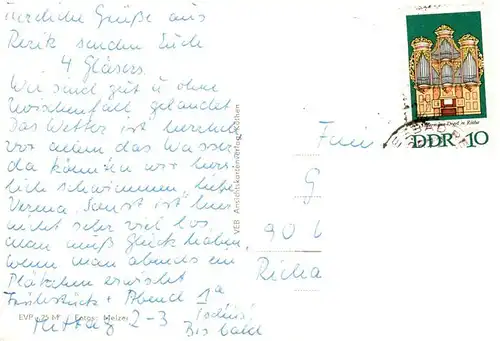 Herzliche Grüße aus
Rerik senden Euch
4 Gläsers.
Wir sind gut u. ohne
Zwischenfall gelandet.
Das Wetter ist herrlich
vor allem das Wasser,
da können wir herr-
lich schwimmen, liebe
Verena. Sonst ist hier
nicht sehr viel los,
man muß Glück haben,
wenn man abends ein
Plätzchen erwischt
Frühstück + Abend 1a
Mittag 2-3 Tschüß!
Bis bald
EVP -,25 M Fotos: Melzer
VEB Ansichtskartenverlag
G
90
Richa
DDR 10